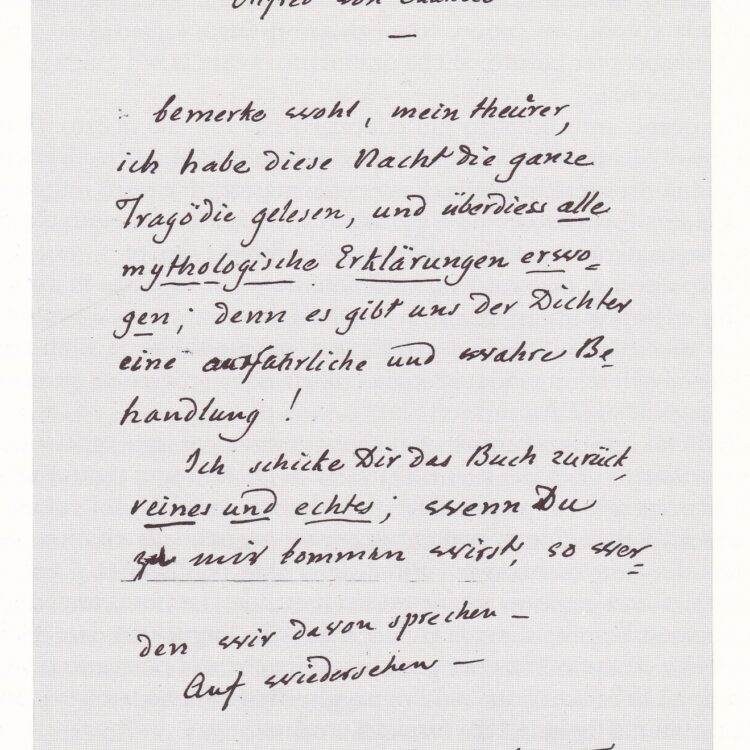 von
bemerke wohl, mein theürer,
ich habe diese Nacht die ganze
Tragödie gelesen, und überdiess alle
mythologische Erklärungen erwo=
gen; denn es gibt uns der Dichter
eine ausfährliche und wahre Be=
handlung!
Ich schicke Dir das Buch zurück,
reines und echtes; wenn Du
zu mir komman wirst, so wer=
den wir davon sprechen —
Auf wiedersehen —